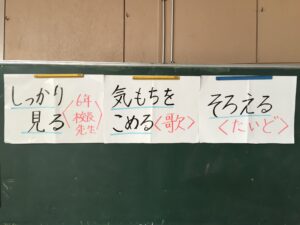 しっかり
見る
〈6年
校長
先生〉
気もちを
こめる〈歌〉
そろえる
〈たいど〉